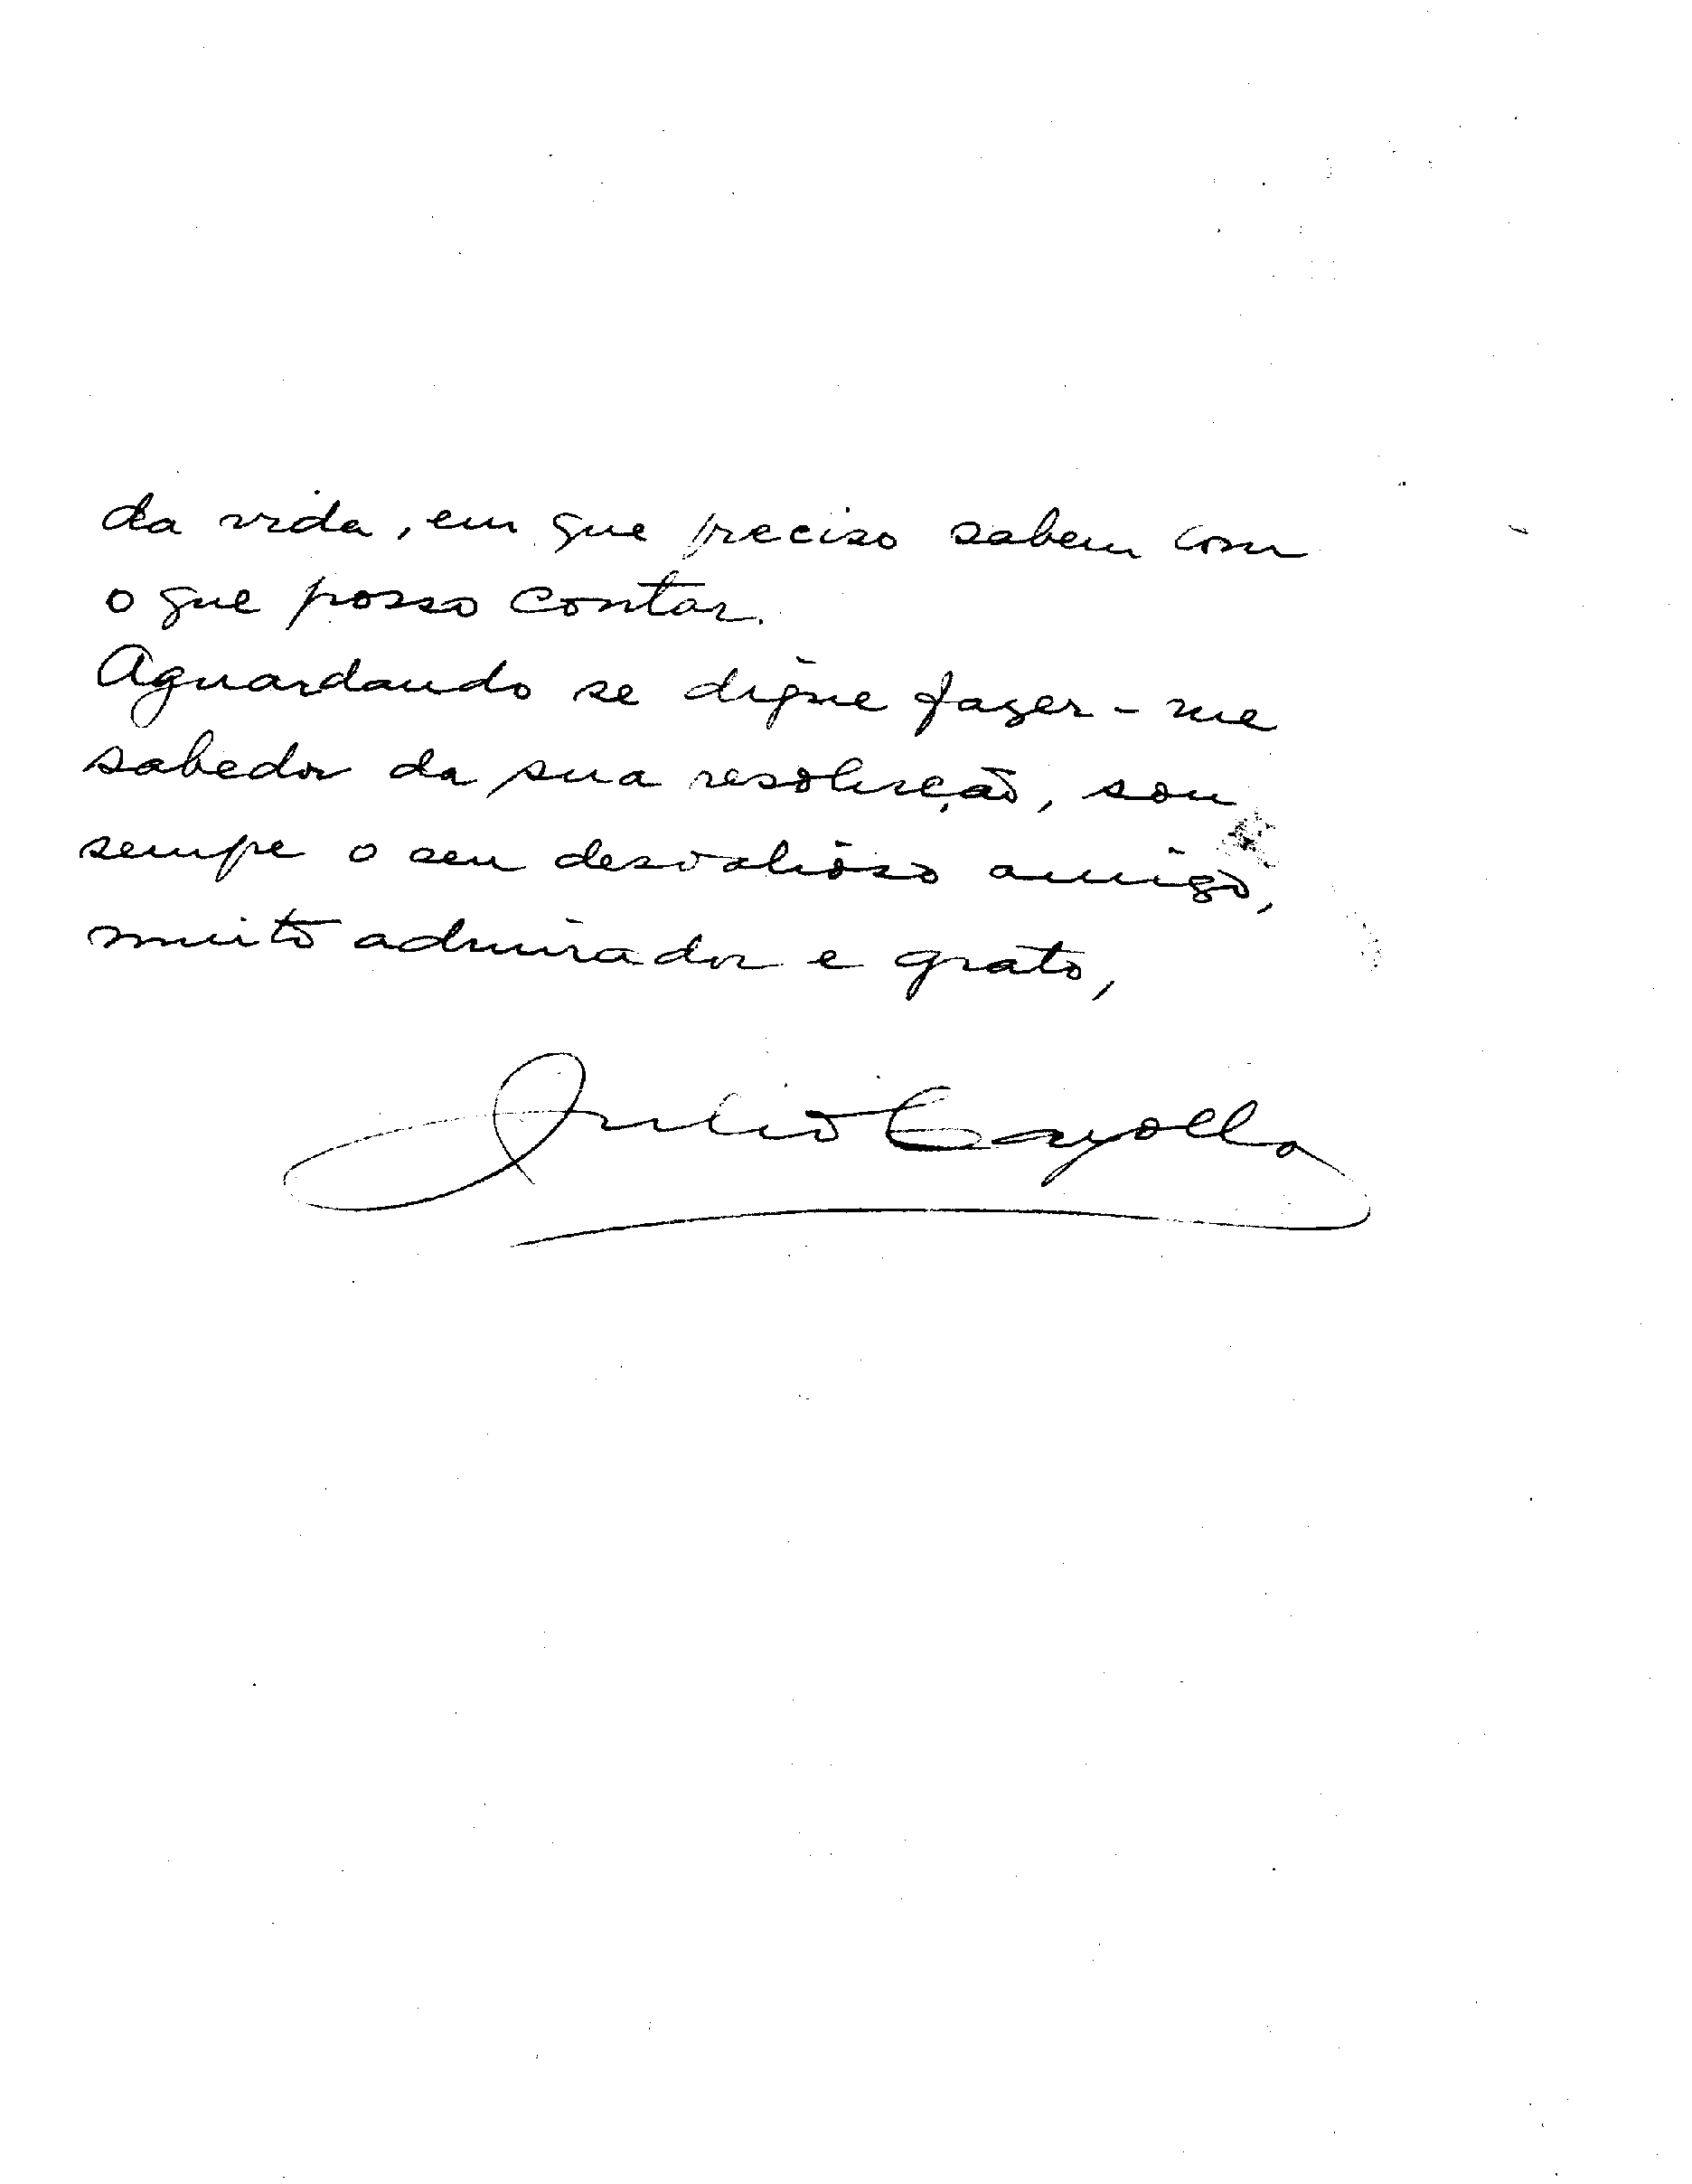 da vida, em que preciso saber com
o que posso contar.
Aguardando se digne fazer-me
sabedor da sua resolução, sou
sempre o seu desvalioso amigo,
muito admirador e grato,
Julio Cayolla